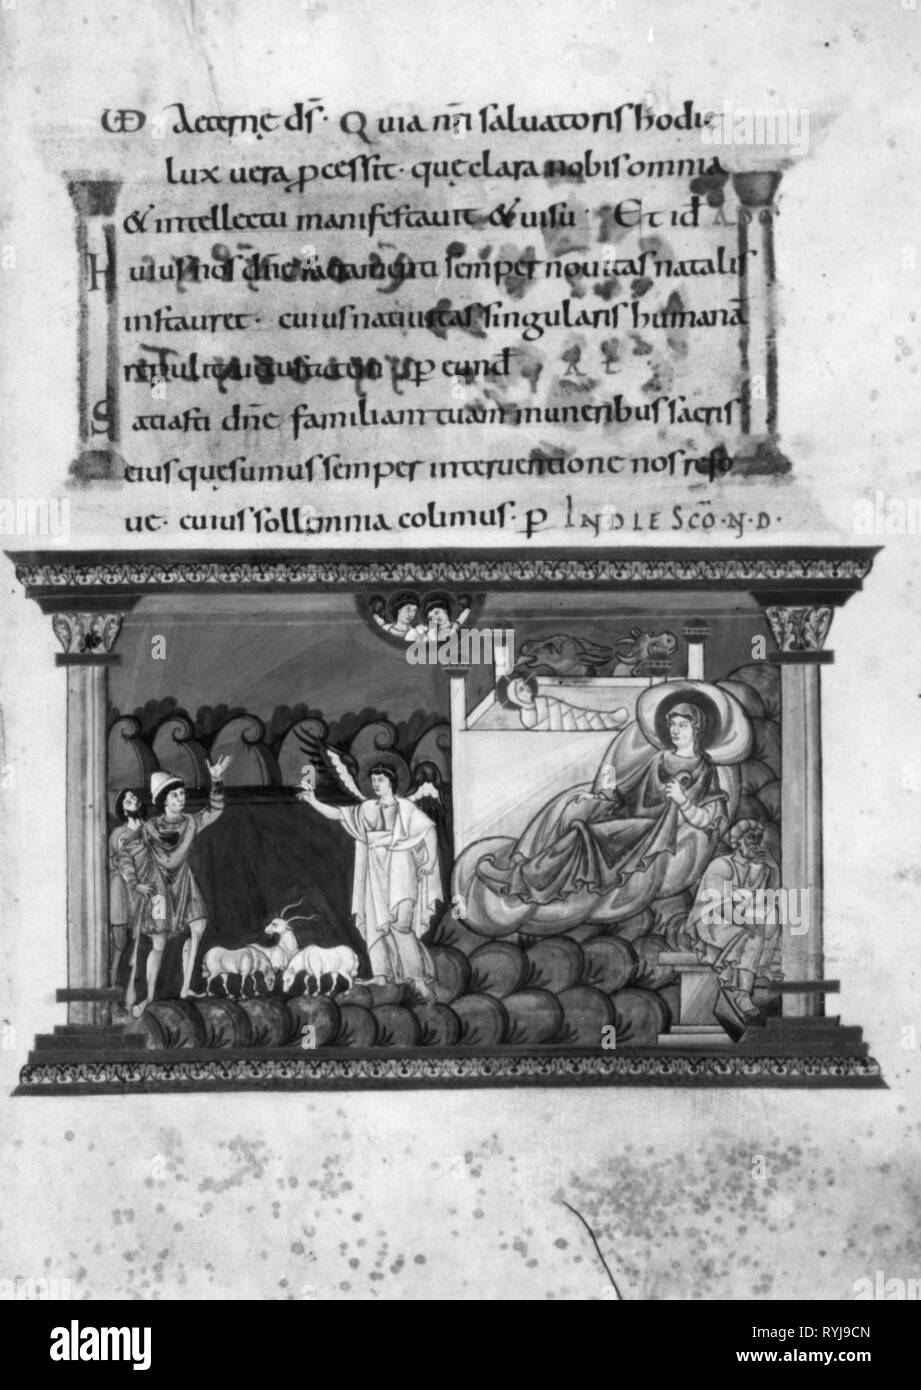 VD Aeternę ds̄. Quia nr̄i salvatoris hodie
lux vera pcessit. quę clara nobis omnia
& intellectu manifestavit & visu. Et id AD CO
Huius nos dn̄e sacramenti semper novitas natalis
instauret. cuius nativitas singularis humanā
reppulit vetustatem. p eund AL
Satiasti dn̄e familiam tuam muneribus sacris
eius quęsumus semper interventione nos refo
ve. cuius sollemnia colimus. p IN DIE SCŌ. N. D.
a
alamy
alamy stock photo
Image ID: RYJ9CN
www.alamy.com